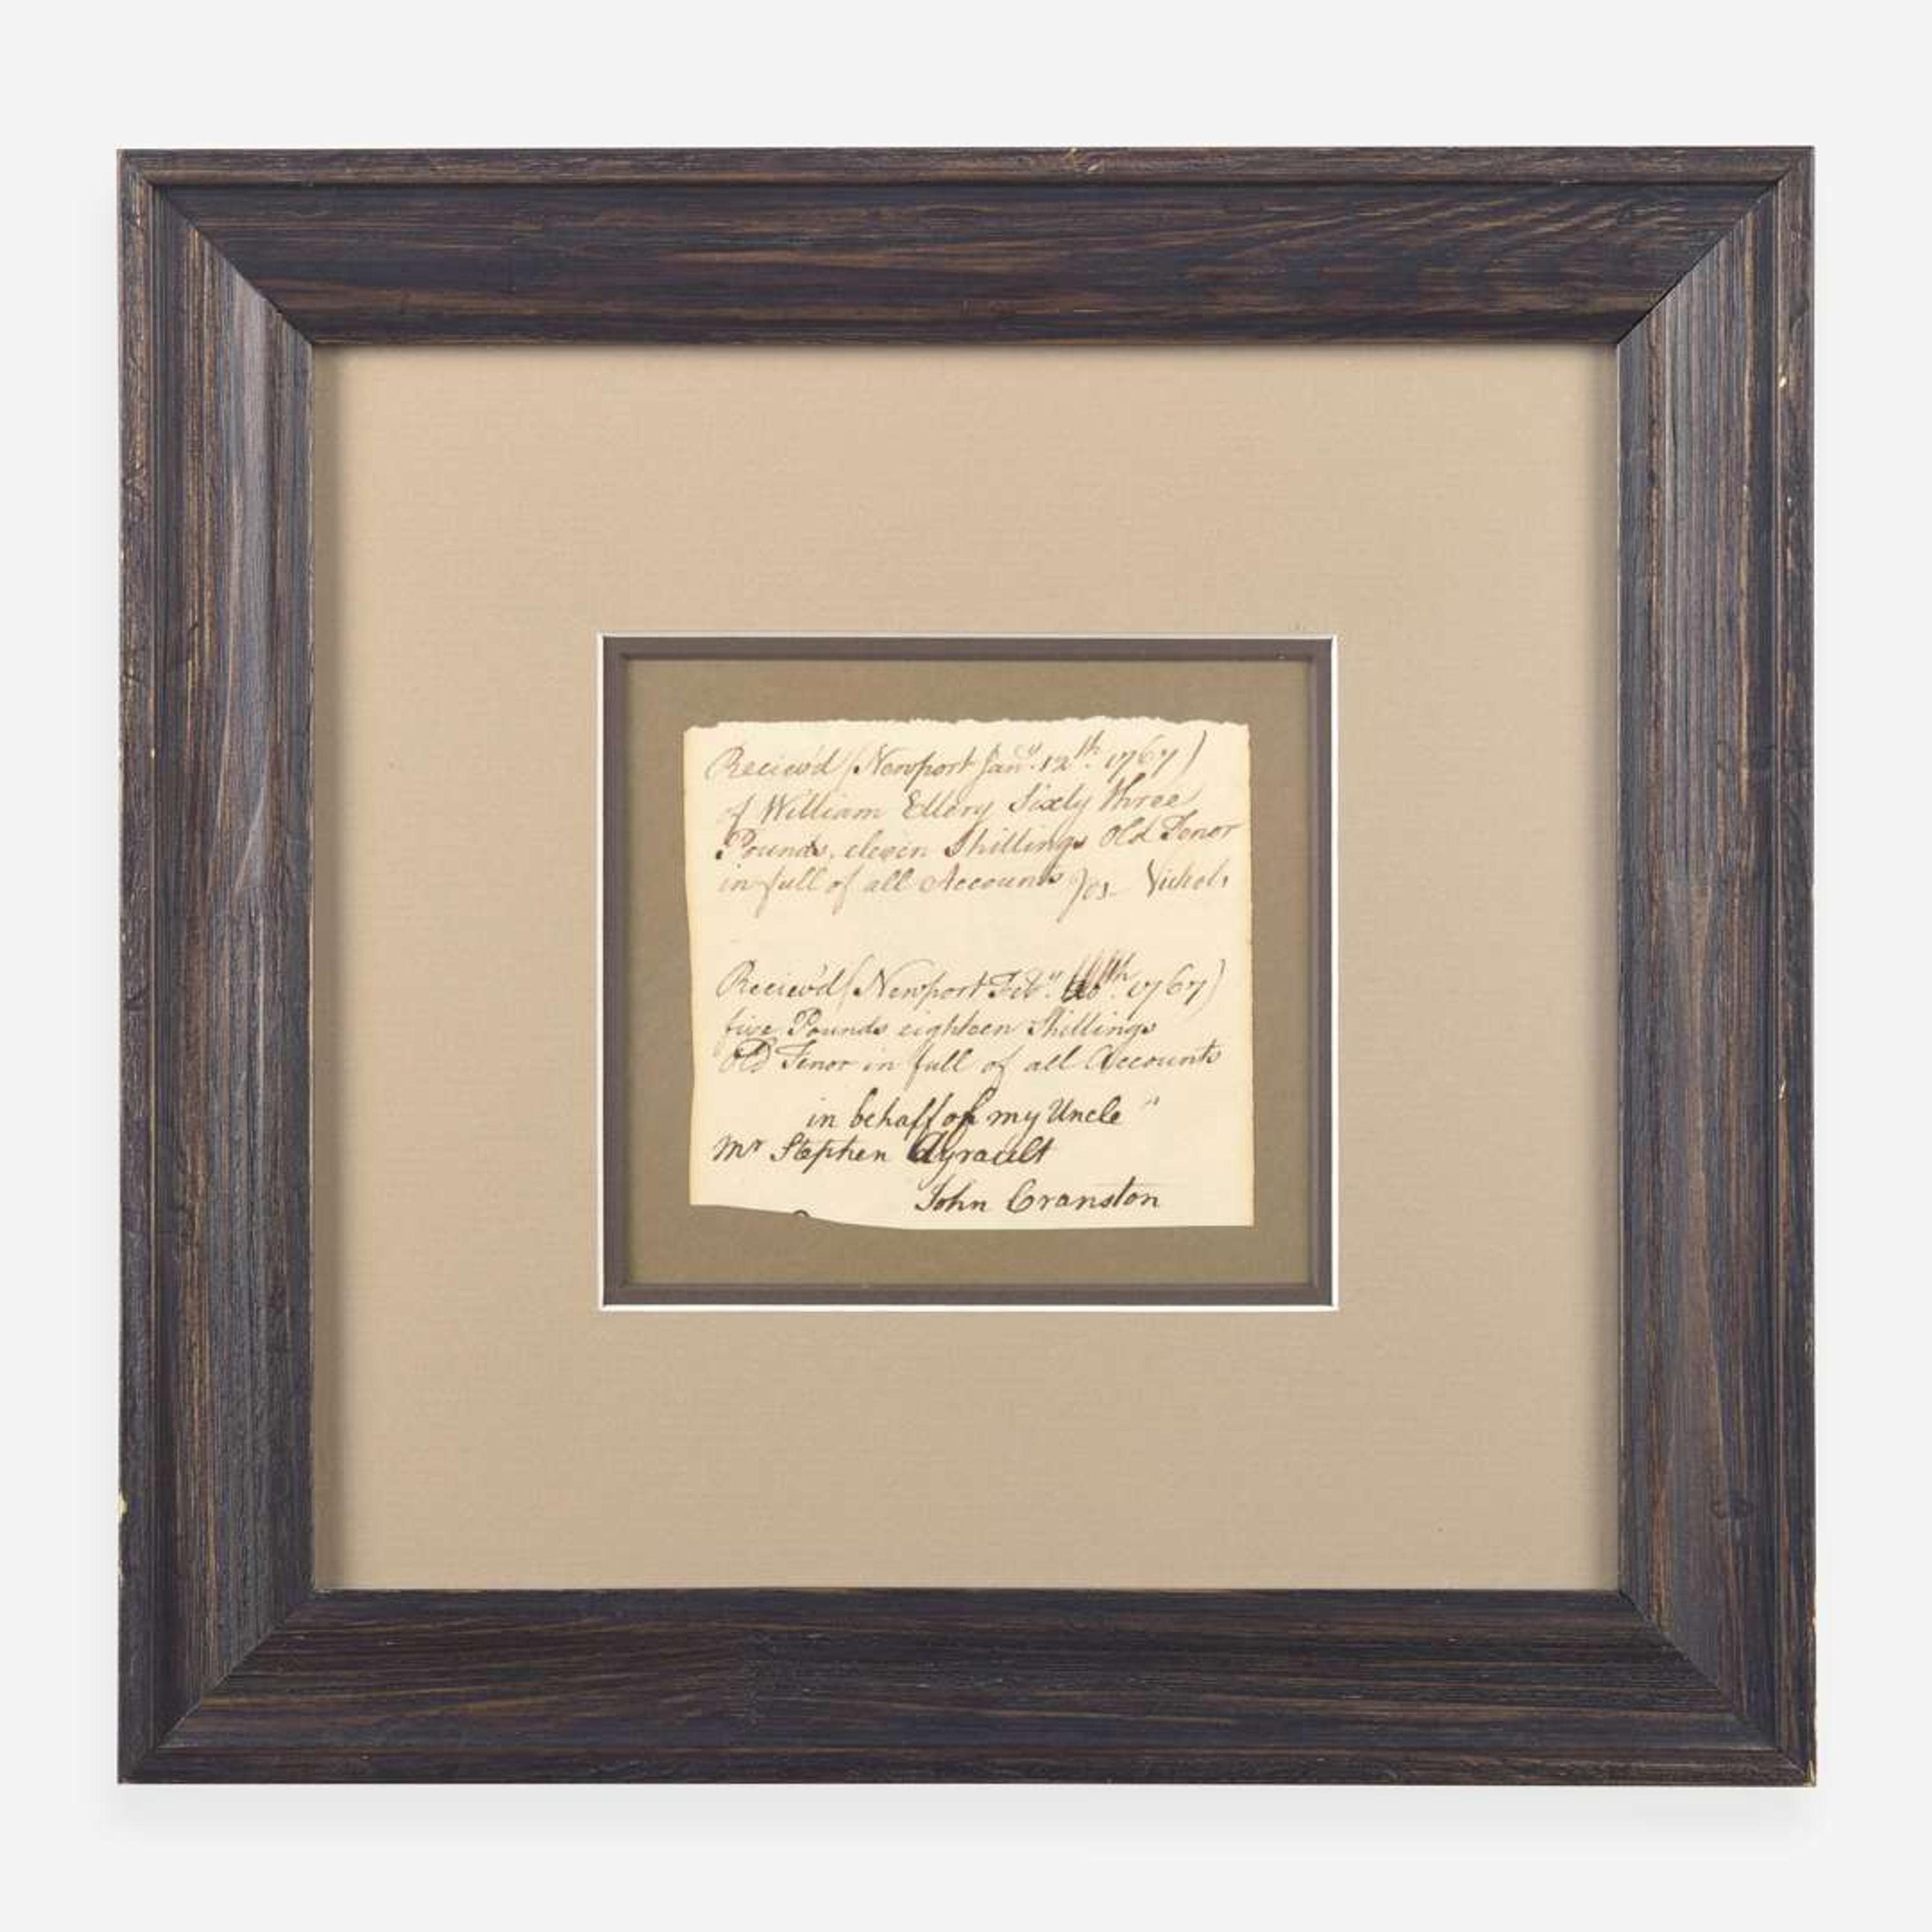 Reciev'd (Newport Jany. 12th. 1767)
of William Ellery Sixty three
Pounds, eleven Shillings Old Tenor
in full of all Accounts Jos Nichols
Reciev'd (Newport Feby. th. 1767)
five Pounds eighteen Shillings
Old Tenor in full of all Accounts
in behalf of my Uncle "
Mr Stephen Ayrault
John Cranston